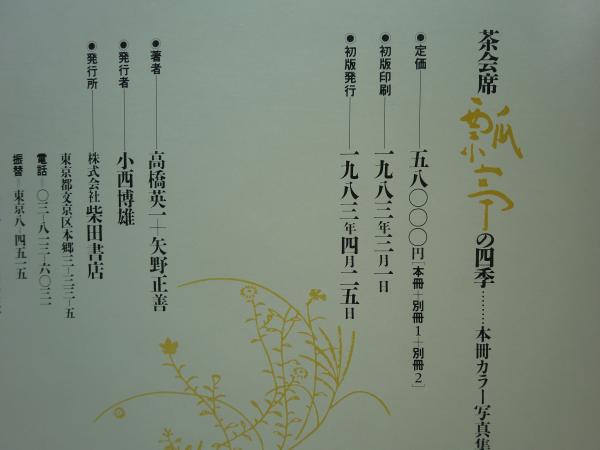 茶会席 瓢亭の四季………本冊カラー写真集
●定価――五八〇〇〇円[本冊+別冊1+別冊2]
●初版印刷――一九八三年三月一日
●初版発行――一九八三年四月二五日
●著者――高橋英一+矢野正善
●発行者――小西博雄
●発行所――株式会社柴田書店
東京都文京区本郷三-三三-五
電話-〇三-八一三-六〇三一
振替-東京八-四五一五